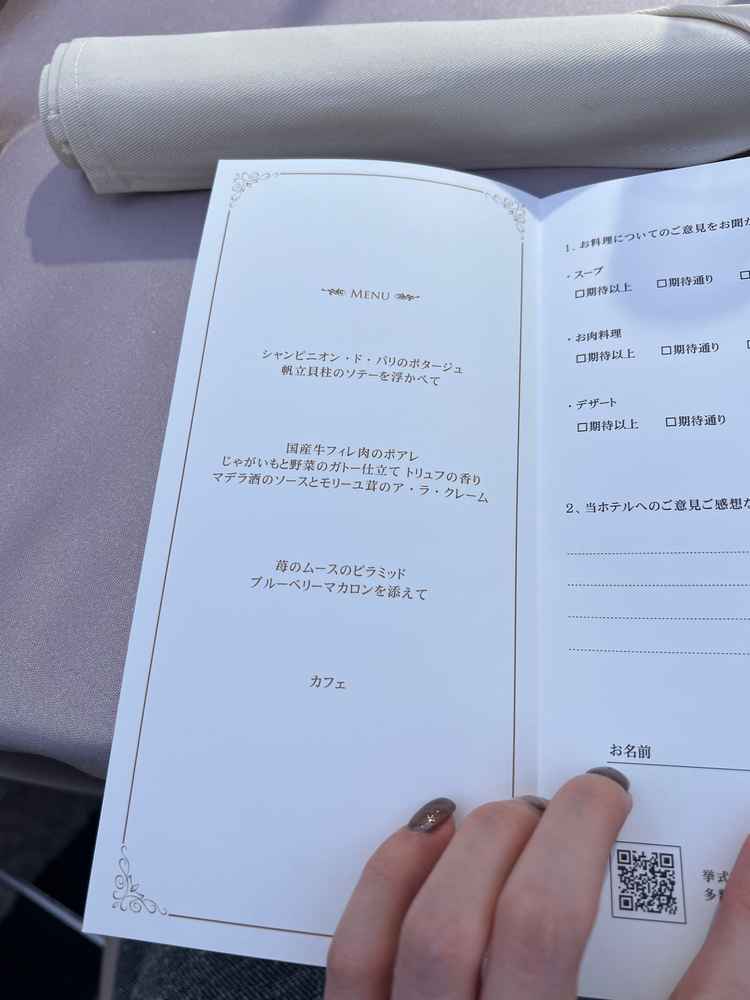 MENU
シャンピニオン・ド・パリのポタージュ
帆立貝柱のソテーを浮かべて
国産牛フィレ肉のポアレ
じゃがいもと野菜のガトー仕立て トリュフの香り
マデラ酒のソースとモリーユ茸のア・ラ・クレーム
苺のムースのピラミッド
ブルーベリーマカロンを添えて
カフェ
1、お料理についてのご意見をお聞か
・スープ
□期待以上 □期待通り □
・お肉料理
□期待以上 □期待通り
・デザート
□期待以上 □期待通り
2、当ホテルへのご意見ご感想な
お名前
挙式
多